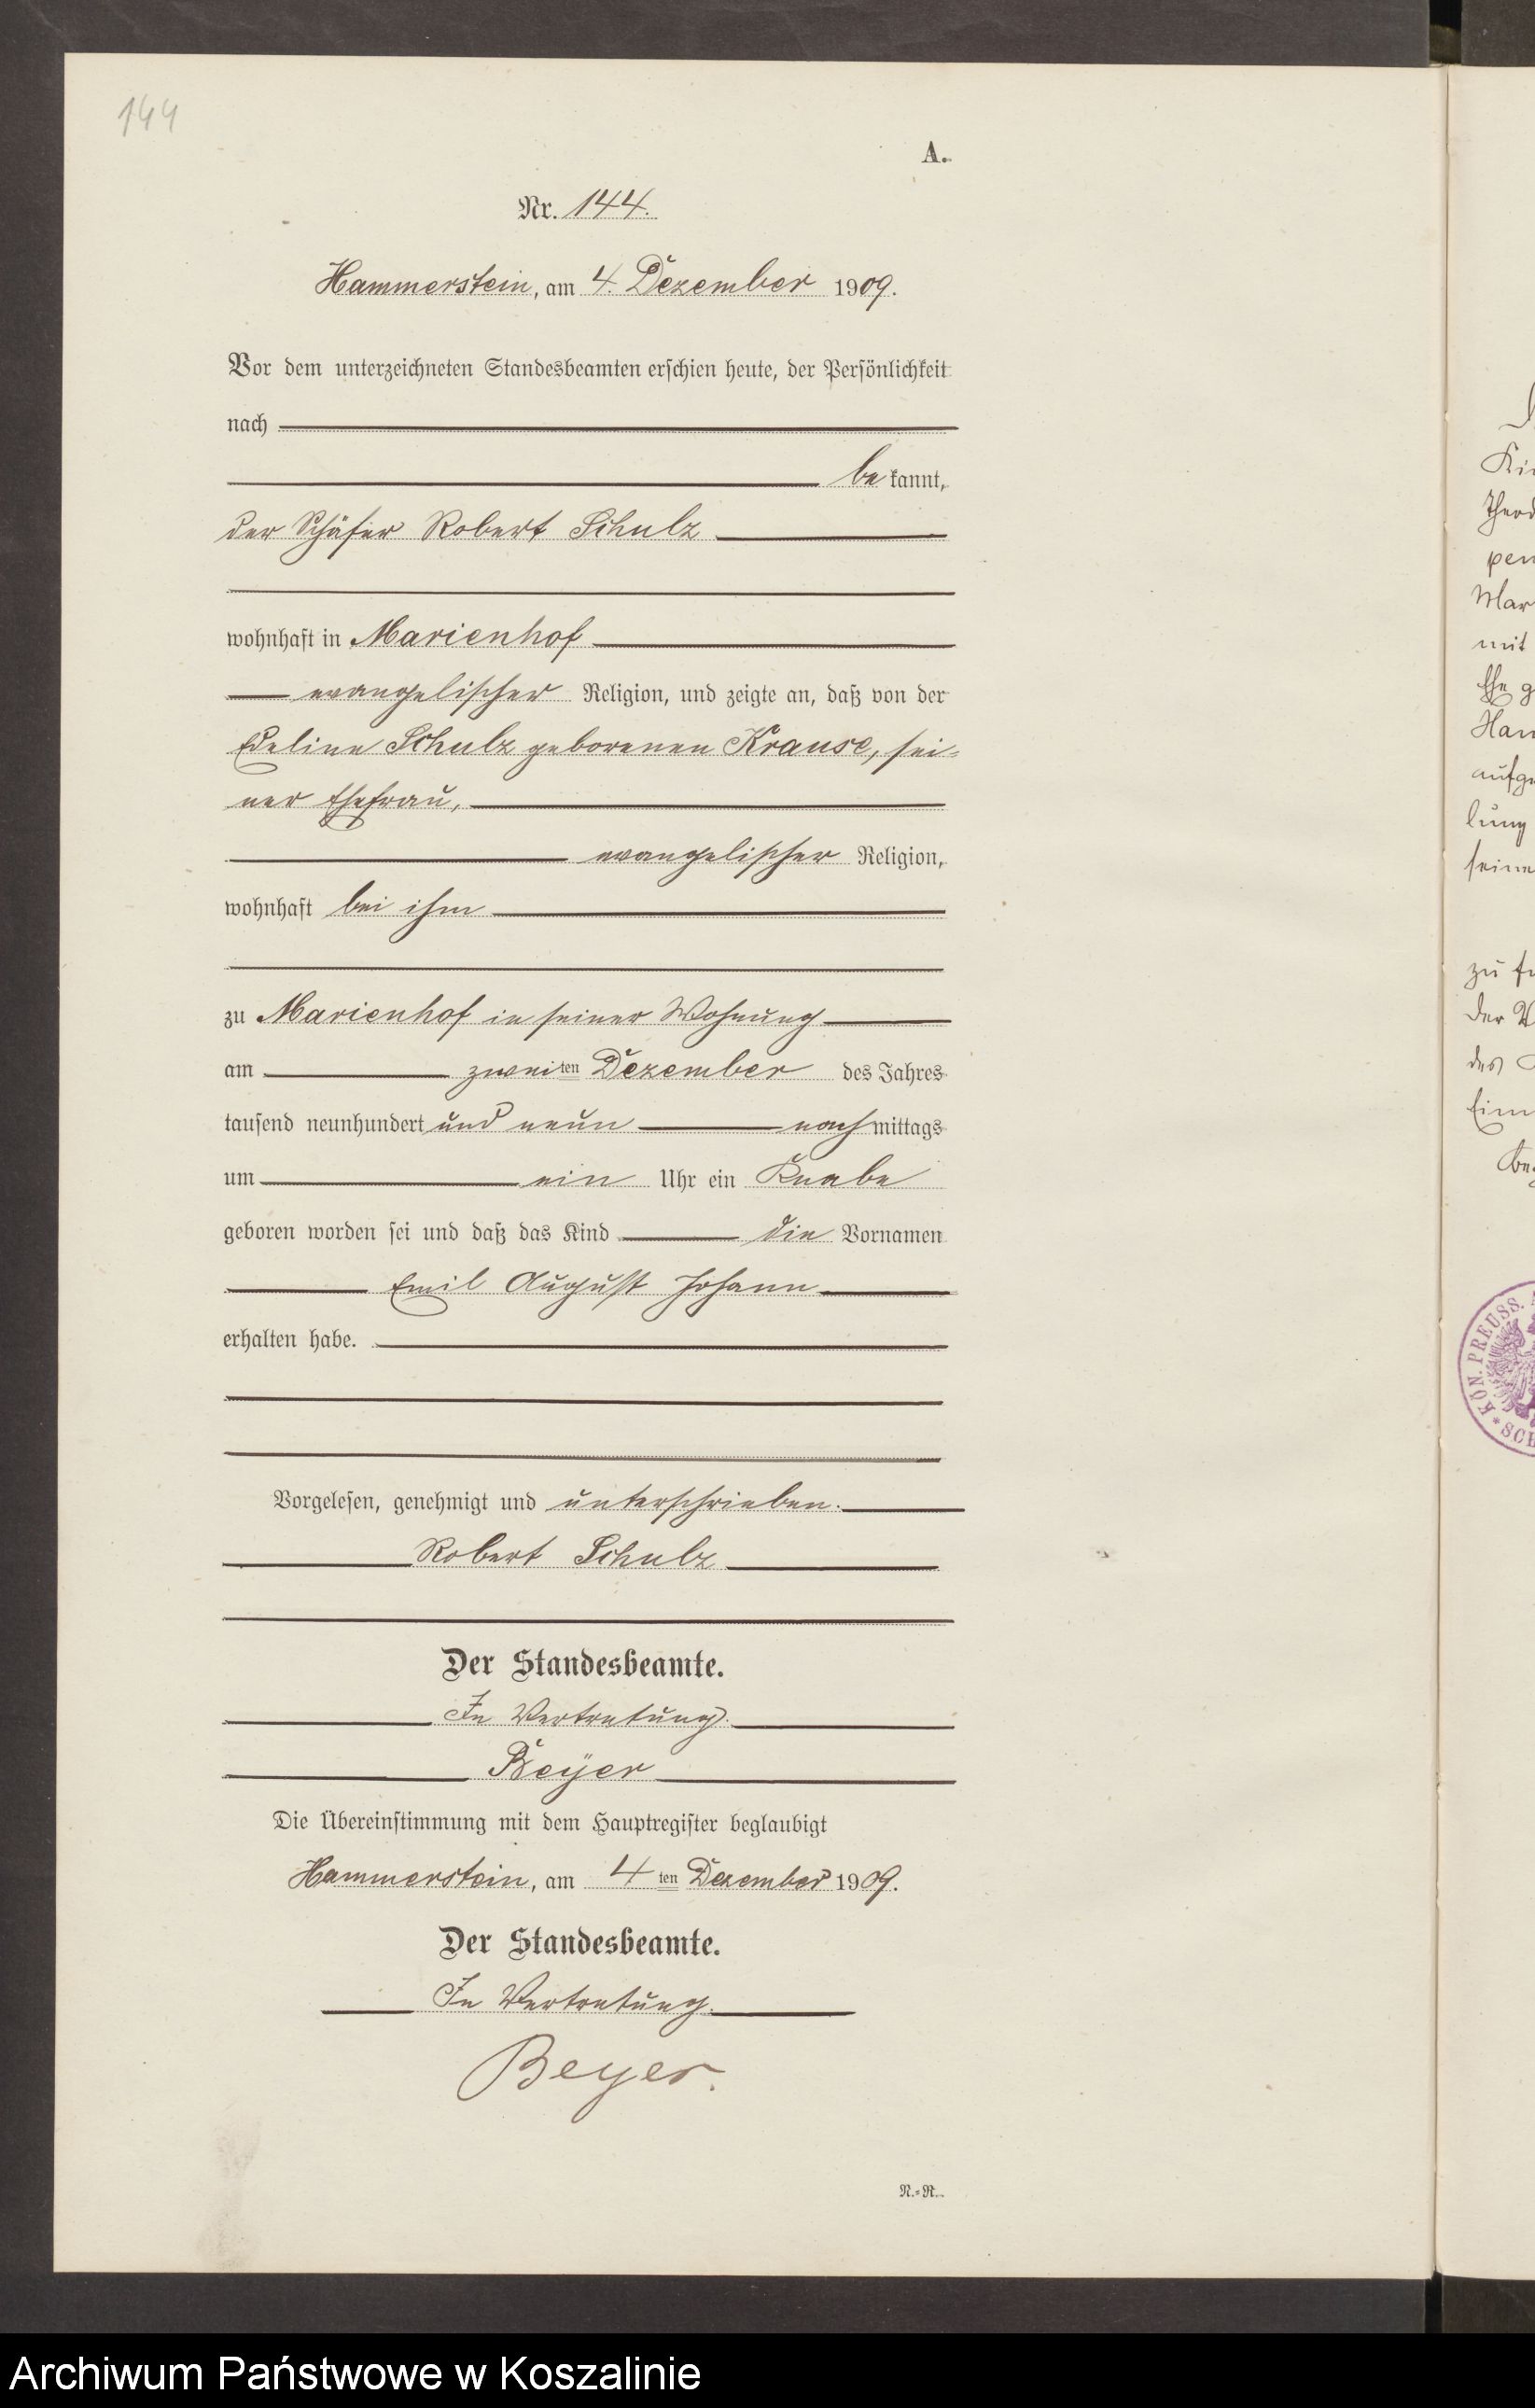 144
A.
Nr. 144.
Hammerstein, am 4. Dezember 1909.
Vor dem unterzeichneten Standesbeamten erschien heute, der Persönlichkeit
nach
be kannt,
der Schäfer Robert Schulz
wohnhaft in Marienhof
evangelischer Religion, und zeigte an, daß von der
Schulz geborenen Krause, sei-
ner Ehefrau,
evangelischer Religion,
wohnhaft bei ihm
zu Marienhof in seiner Wohnung
am zweiten Dezember des Jahres
tausend neunhundert und neun nachmittags
um ein Uhr ein Knabe
geboren worden sei und daß das Kind die Vornamen
Emil August Johann
erhalten habe.
Vorgelesen, genehmigt und unterschrieben.
Robert Schulz
Der Standesbeamte.
In Vertretung.
Beyer
Die Übereinstimmung mit dem Hauptregister beglaubigt
Hammerstein, am 4ten Dezember 1909.
Der Standesbeamte.
In Vertretung.
Beyer.
N.=R.
mit
zu
der
des
KÖN. PREUSS.
Archiwum Państwowe w Koszalinie